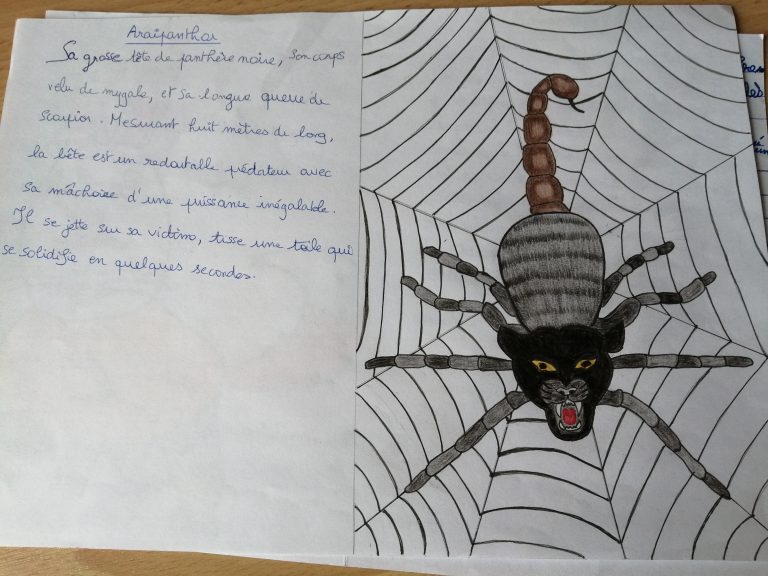 Araipanthor
Sa grosse tête de panthère noire, son corps
velu de mygale, et sa longue queue de
scorpion. Mesurant huit mètres de long,
la bête est un redoutable prédateur avec
sa mâchoire d'une puissance inégalable.
Il se jette sur sa victime, tisse une toile qui
se solidifie en quelques secondes.